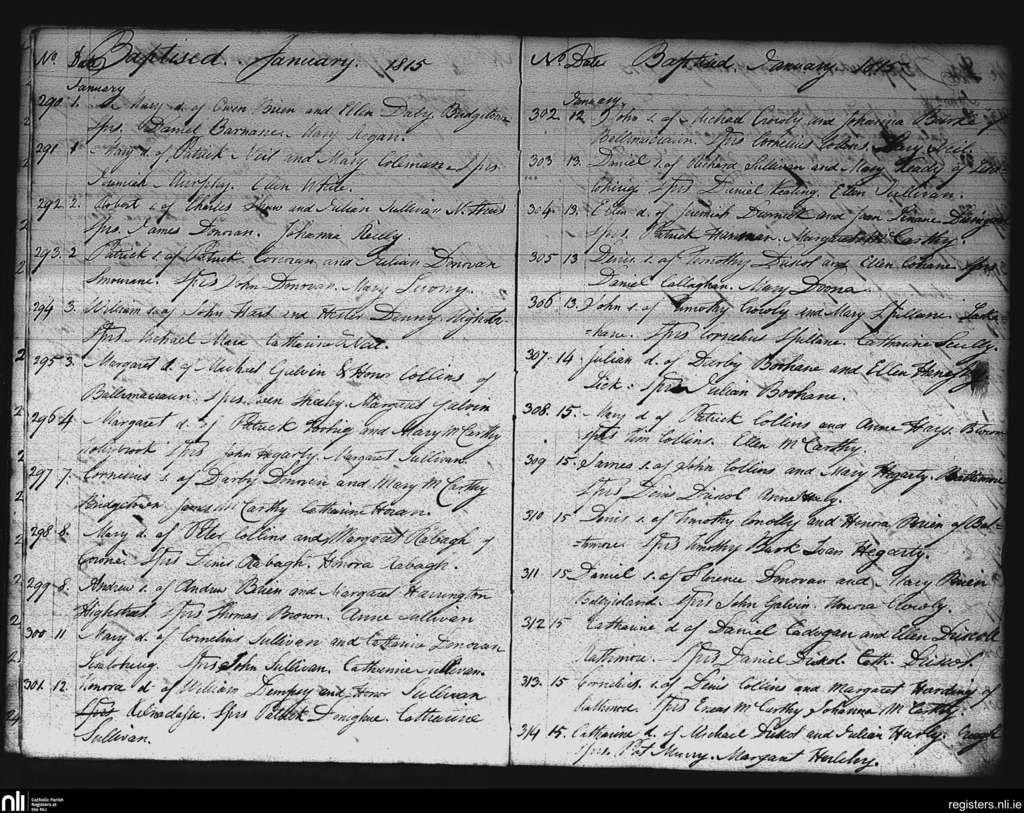 No. Date Baptised. January. 1815
January
290 1. Mary d. of Owen Brien and Ellen Daly. Bridgetown
Sprs. Daniel Barnane. Mary Regan.
291 1 Mary d. of Patrick Neil and Mary Coleman. Sprs
Jeremiah Murphy. Ellen White.
292 2. Robert s. of Charles and Julian Sullivan
Sprs. James Donovan. Johanna Reilly
293. 2 Patrick s. of Patrick Corcoran and Julian Donovan
Smorane. Sprs John Donovan. Mary
294 3. William s. of John Hart and Hester Denny. Highstr.
Sprs Michael Mara Catharine
295 3. Margaret d. of Michael Galvin & Honor Collins of
Ballimacraun. Sprs. Sheehy. Margaret Galvin
296 4 Margaret d. of Patrick and Mary McCarthy
Hollybrook Sprs John Hegarty. Margaret Sullivan.
297 7. Cornelius s. of Darby Donovan and Mary McCarthy
Bridgetown James McCarthy Catharine Horan.
298 8. Mary d. of Peter Collins and Margaret Rabagh of
Coronea. Sprs Denis Rabagh. Honora Rabagh.
299 8. Andrew s. of Andrew Brien and Margaret Harrington
Highstreet. Sprs Thomas Brown. Anne Sullivan
300 11 Mary d. of Cornelius Sullivan and Catharine Donovan
Sprs John Sullivan. Catharine Sullivan.
301. 12. Honora d. of William Dempsey and Honor Sullivan
Sprs Patrick Donoghue. Catharine
Sullivan.
No Date Baptised. January. 1815
January.
302 12 John s. of Michael Crowly and Johanna Burke of
Ballimacraun. Sprs Cornelius Collins. Mary Neil
303 13. Daniel s. of Richard Sullivan and Mary Leady of
Sprs Daniel Keating. Ellen Sullivan.
304. 13. Ellen d. of Jeremiah and Joan
Sprs. Patrick Margaret McCarthy.
305 13 Denis s. of Timothy Driscol and Ellen Cohane. Sprs
Daniel Callaghan. Mary Doona
306 13. John s. of Timothy Crowly and Mary Spillane
Sprs Cornelius Spillane. Catharine Scully.
307. 14. Julian d. of Darby Boohane and Ellen
Lick: Sprs Julian Boohane.
308. 15. Mary d. of Patrick Collins and Anne Hays.
Sprs Tim Collins. Ellen McCarthy.
309 15. James s. of John Collins and Mary Hegarty. Baltimore
Sprs Denis Driscol Anne Healy.
310 15 Denis s. of Timothy Conolly and Honora Brien of Bal=
=timore Sprs Timothy Joan Hegarty.
311 15 Daniel s. of Florence Donovan and Mary Brien
Ballyisland. Sprs John Galvin. Honora Crowly.
312 15 Catharine d. of Daniel Cadogan and Ellen Driscoll
Rathmore. Sprs Daniel Driscol. Cath. Driscol.
313. 15 Cornelius s. of Denis Collins and Margaret Harding of
Rathmore. Sprs Eneas McCarthy Johanna McCarthy.
314 15. Catharine d. of Michael Driscol and Julian Hurly. Creagh
Sprs. Pat Murry. Margaret Hurley.
nli Catholic Parish
Registers at
the NLI
registers.nli.ie